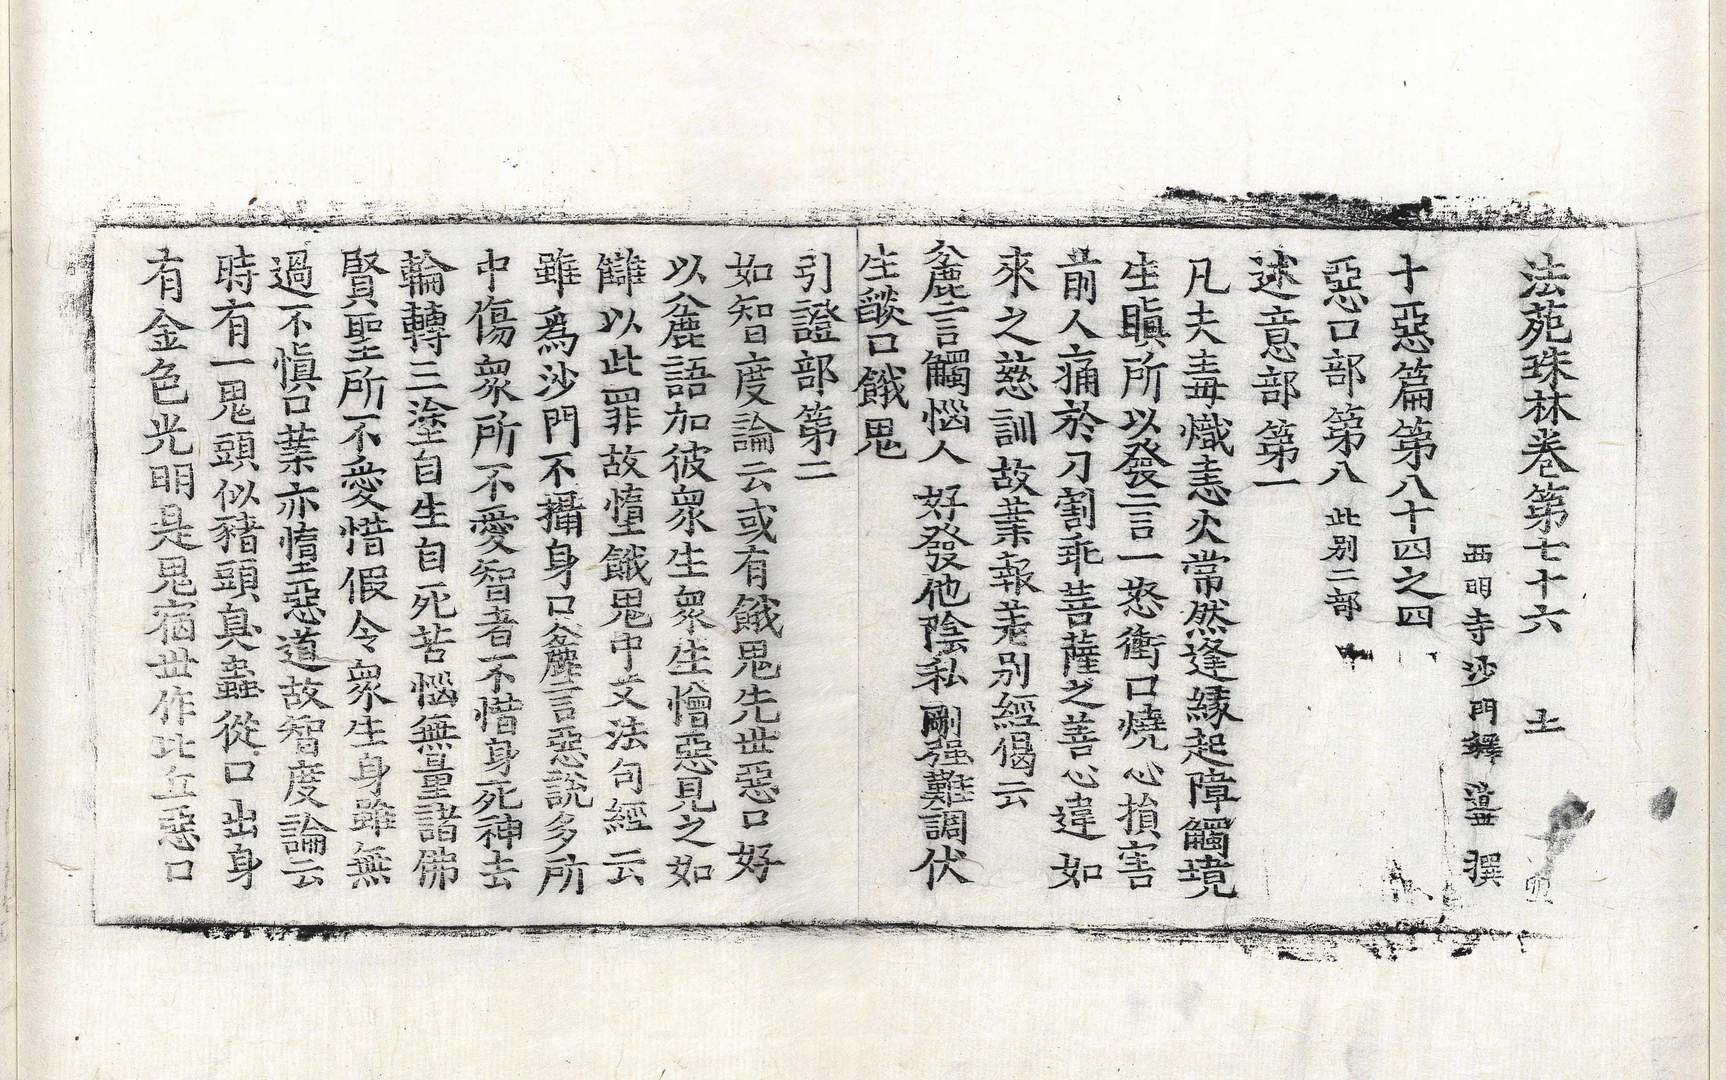 法苑珠林卷第七十六 士
西明寺沙門釋道世撰
十惡篇第八十四之四
惡口部第八 此別二部
述意部第一
凡夫毒熾恚火常然逢緣起障觸境
生瞋所以發言一怒衝口燒心損害
前人痛於刀割乖菩薩之善心違如
來之慈訓故業報差別經偈云
麁言觸惱人 好發他陰私 剛强難調伏
生燄口餓鬼
引證部第二
如智度論云或有餓鬼先世惡口好
以麁語加彼衆生衆生憎惡見之如
讎以此罪故墮餓鬼中又法句經云
雖爲沙門不攝身口麁言惡說多所
中傷衆所不愛智者不惜身死神去
輪轉三塗自生自死苦惱無量諸佛
賢聖所不愛惜假令衆生身雖無
過不愼口業亦墮惡道故智度論云
時有一鬼頭似豬頭臭蟲從口出身
有金色光明是鬼宿世作比丘惡口